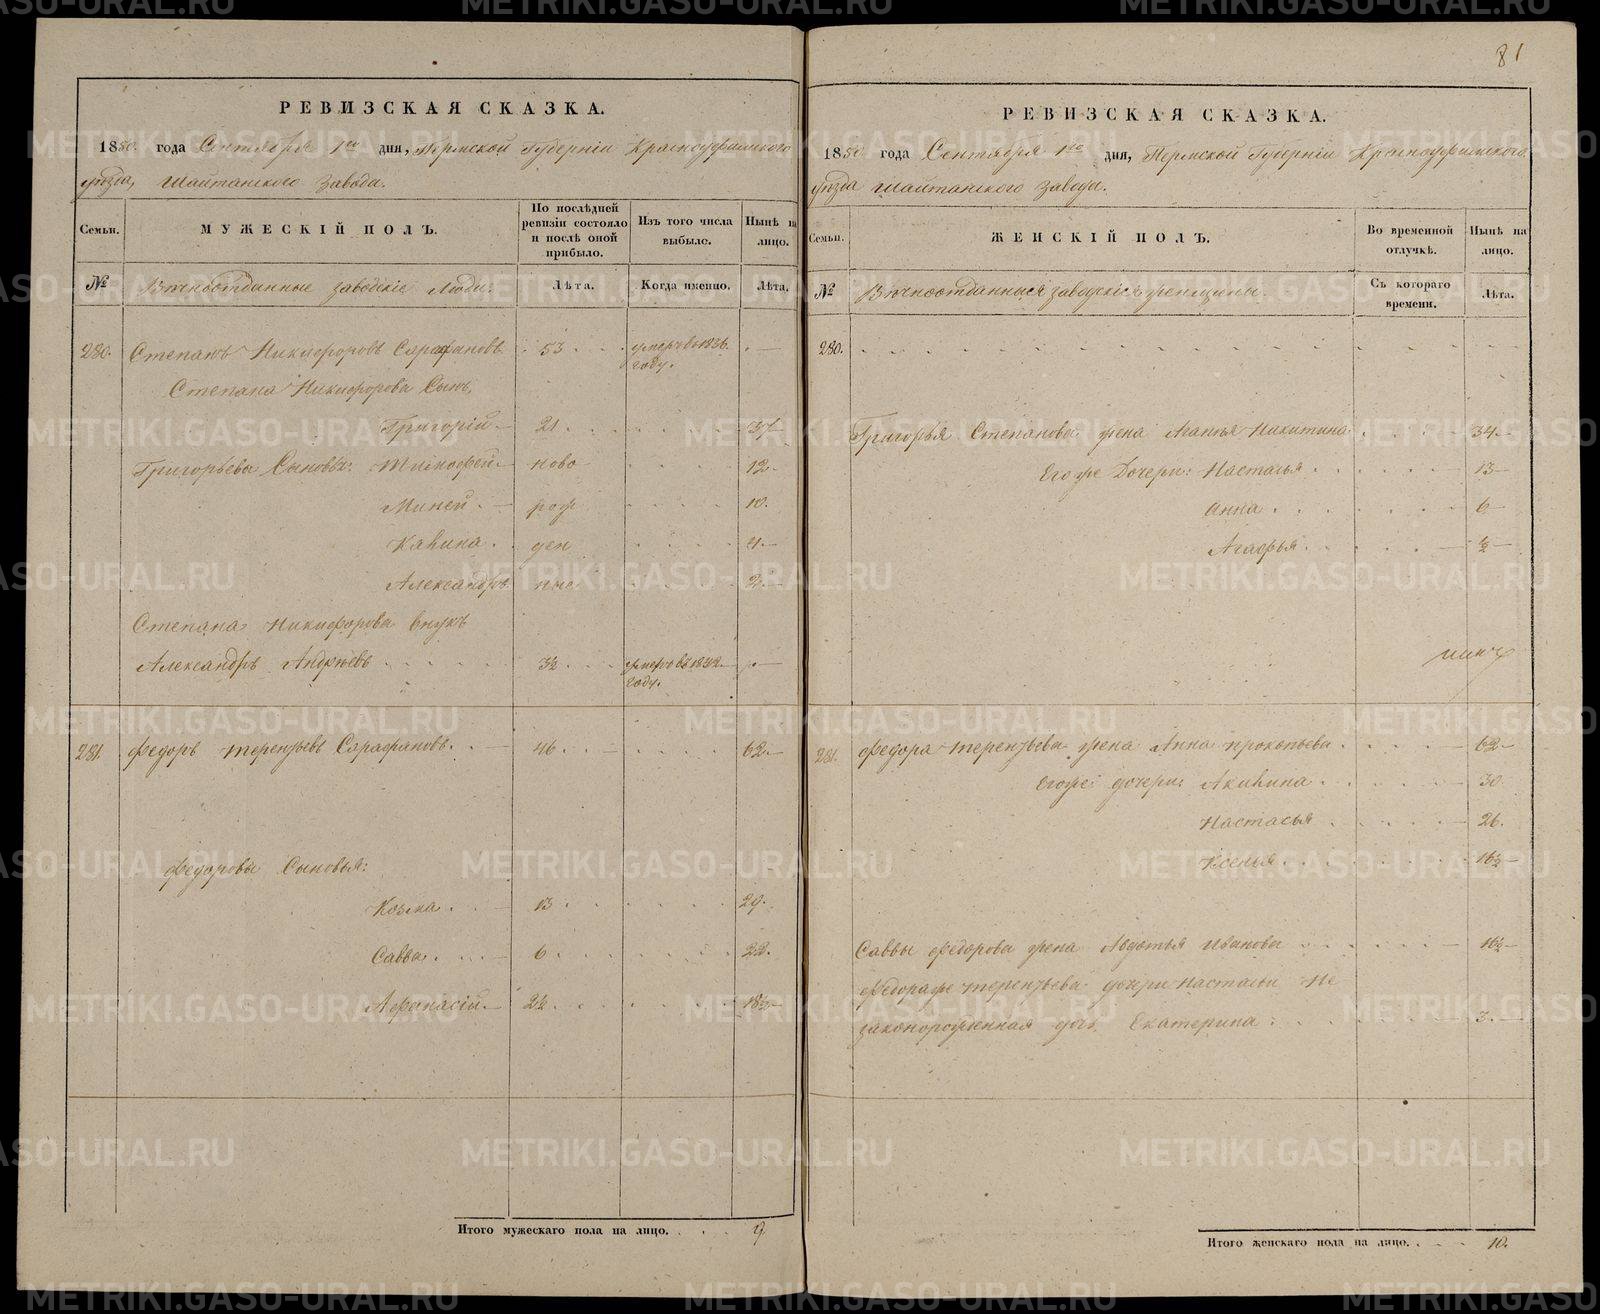 81
РЕВИЗСКАЯ СКАЗКА.
1850. года Сентября 1го дня, Пермской Губерніи Красноуфимскаго
уѣзда, Шайтанскаго завода.
Семьи.
МУЖЕСКІЙ ПОЛЪ.
По послѣдней ревизіи состояло и послѣ оной прибыло.
Изъ того числа выбыло.
Нынѣ на лицо.
№
Вѣчноотданные заводскіе люди:
Лѣта.
Когда именно.
Лѣта.
280. Степанъ Никифоровъ Сарафановъ 53 умеръ въ 1836. году. —
Степана Никифорова Сынъ,
Григорій — 21 37
Григорьева Сыновья: Тимофей — ново 12
Миней — рож 10.
Ден
Александръ 2. —
Степана Никифорова внукъ
Александръ Андрѣевъ 3½ умеръ въ 1832 году. —
281. Федоръ Терентьевъ Сарафановъ. — 46 62 —
Федоровы Сыновья:
Козма 13 29.
Савва 6 22.
Афонасій — 2½ 18½ —
Итого мужескаго пола на лицо. 9
РЕВИЗСКАЯ СКАЗКА.
1850 года Сентября 1го дня, Пермской Губерніи Красноуфимскаго
уѣзда Шайтанскаго завода.
Семьи.
ЖЕНСКІЙ ПОЛЪ.
Во временной отлучкѣ.
Нынѣ на лицо.
№
Вѣчноотданныя заводскія женщины.
Съ котораго времени.
Лѣта.
280.
Григорья Степанова жена Агапья Никитина 34 —
Его же Дочери: Настасья 13 —
Анна 6 —
Агафья ½ —
281. Федора Терентьева жена Анна Прокопьева 62 —
Егоже дочери: Акилина 30
Настасья 26.
Ксенья 16½ —
Саввы Федорова жена Авдотья Иванова 16½ —
Федораже Терентьева дочери Настасьи Не
законорожденная дочь Екатерина 3. —
Итого женскаго пола на лицо. 10.
METRIKI.GASO-URAL.RU